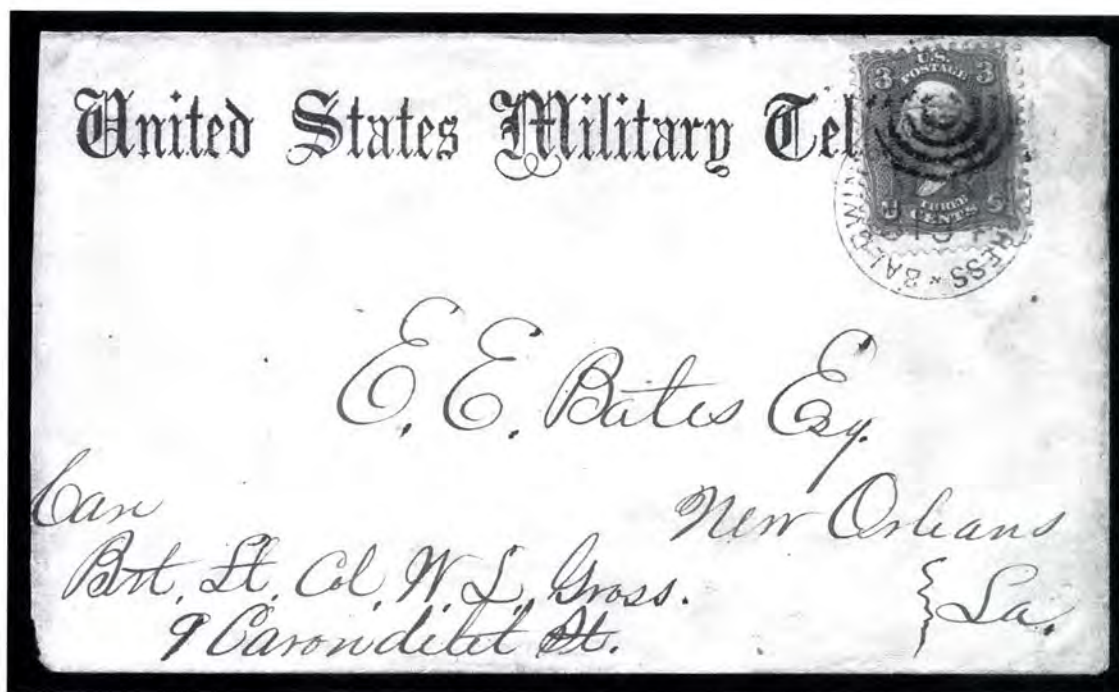 United States Military Tel
3 U.S. POSTAGE 3
THREE CENTS
BALDWIN
E. E. Bates Esq.
New Orleans
La.
Care
Bvt. Lt. Col. W. L. Gross.
9 Carondelet St.